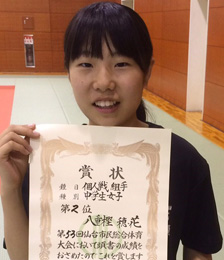 賞状
種目 個人戦 組手
種別 中学生女子
第2位
八重樫 穂花
第53回仙台市民総合体育
大会において頭書の成績を
おさめたのでこれを賞します